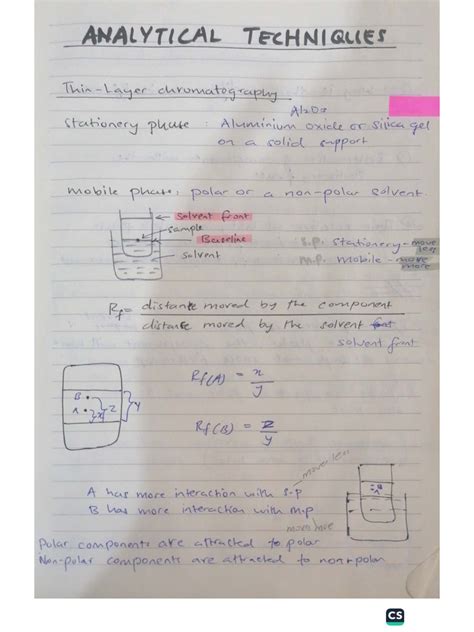 ANALYTICAL TECHNIQUES
Thin-Layer chromatography
Al2O3
Stationery phase : Aluminium oxide or silica gel
on a solid support
mobile phase: polar or a non-polar solvent.
Solvent front
sample
Baseline
solvent
s.p. stationery - move less
m.p. mobile - move more
Rf = distance moved by the component
distance moved by the solvent
solvent front
Rf(A) = x
y
Rf(B) = z
y
B
A
x
z
y
moves less
A has more interaction with s.p
B has more interaction with m.p
B
A
Polar components are attracted to polar
Non-polar components are attracted to non-polar
CS